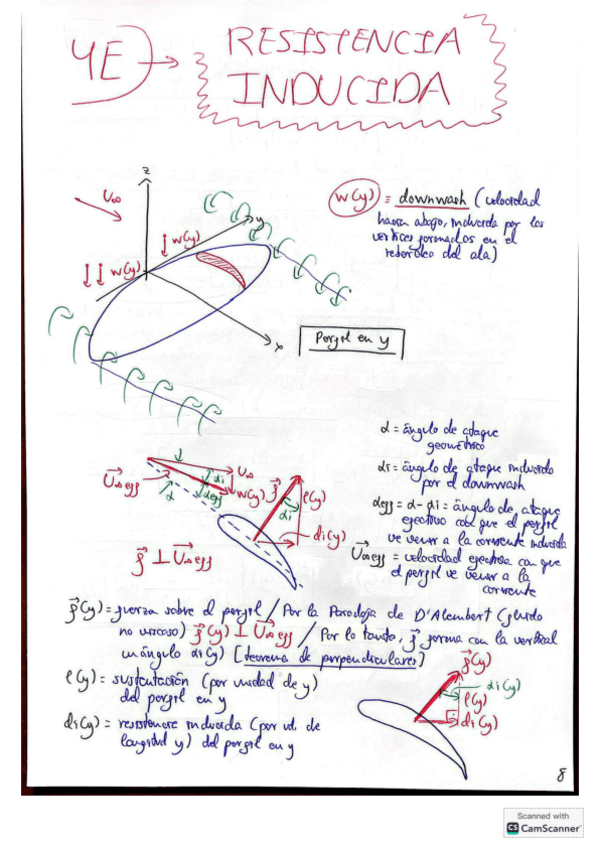 4E) → RESISTENCIA
INDUCIDA
z
U∞
y
w(y)
w(y)
x
Perfil en y
w(y) = downwash (velocidad
hacia abajo, inducida por los
vórtices formados en el
rededor del ala)
α = ángulo de ataque
geométrico
αi = ángulo de ataque inducido
por el downwash
αeff = α - αi = ángulo de ataque
efectivo con que el perfil
ve venir a la corriente incidida
U∞eff = velocidad efectiva con que
el perfil ve venir a la
corriente
U∞
U∞eff
α
αi
αeff
w(y)
f
αi
l(y)
di(y)
f ⊥ U∞eff
f(y) = fuerza sobre el perfil / Por la Paradoja de D'Alembert (fluido
no viscoso) f(y) ⊥ U∞eff / Por lo tanto, f forma con la vertical
un ángulo αi(y) [teorema de perpendiculares]
l(y) = sustentación (por unidad de y)
del perfil en y
di(y) = resistencia inducida (por ud. de
longitud y) del perfil en y
f(y)
αi(y)
l(y)
di(y)
8
Scanned with
CS CamScanner